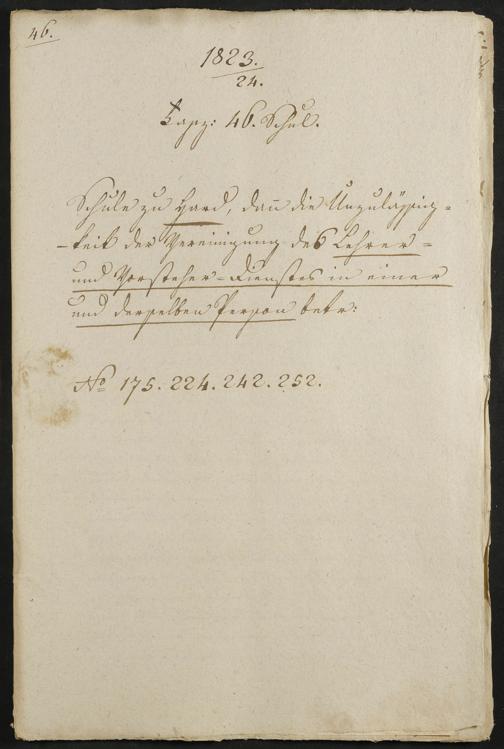 46.
1823.
24.
46. Schul.
Schule zu Hard, dann die Unzulässig=
=keit der Vereinigung des Lehrer=
und Vorsteher=Dienstes in einer
und derselben Person betr:
No 175. 224. 242. 252.